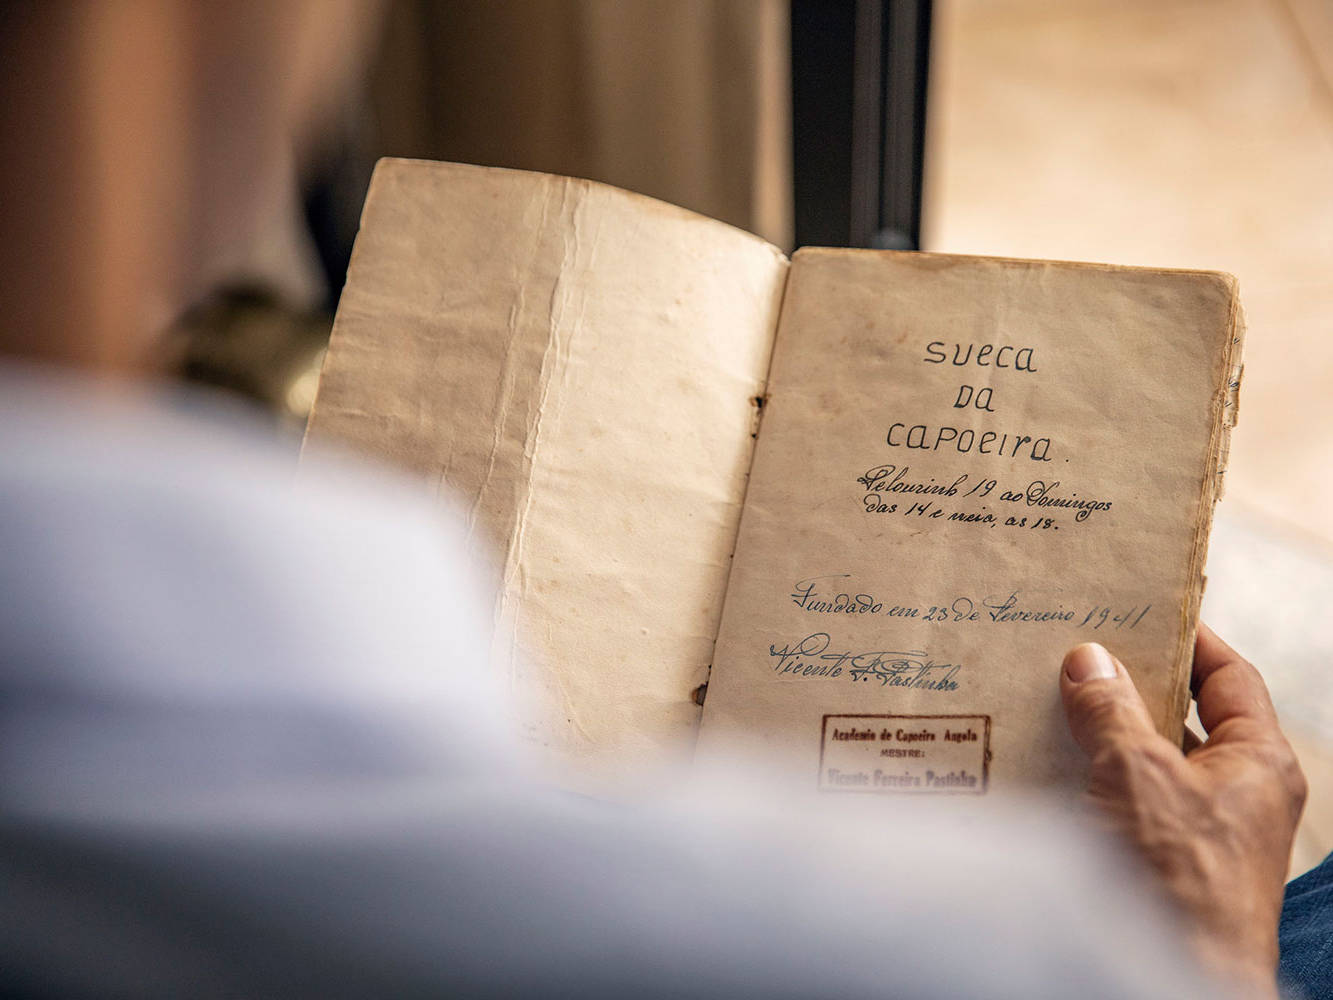 SUECA
DA
CAPOEIRA.
Pelourinh 19 ao Domingos
das 14 e meia, as 18.
Fundado em 23 de Fevereiro 1941
Vicente F. Pastinha
Academia de Capoeira Angola
MESTRE:
Vicente Ferreira Pastinha